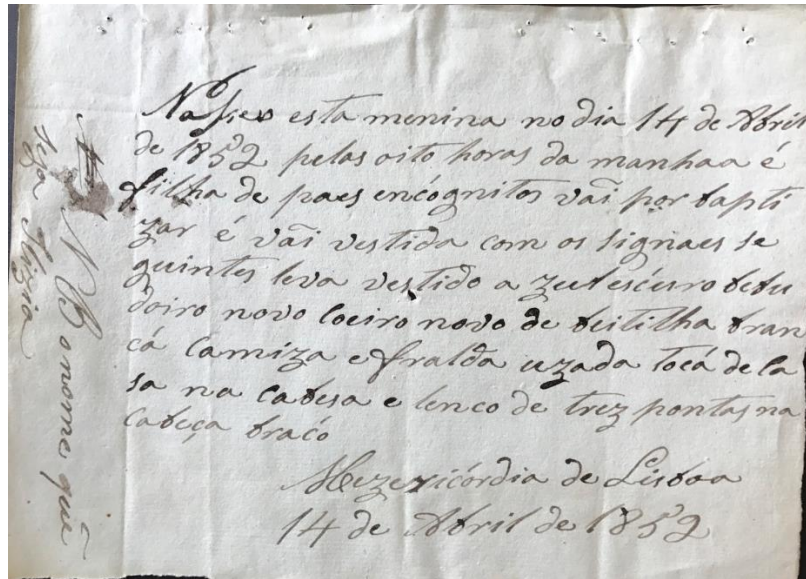 Nasseo esta menina no dia 14 de Abril
de 1852 pelas oito horas da manhaa é
filha de paes encógnitos vai por bapti
zar é vai vestida com os signaes se
guintes leva vestido a zul escuro bebu
doiro novo Coeiro novo de beitilha bran
cá Camiza e fralda uzada toca de ca
sa na cabesa e lenco de trez pontas na
Cabeça bracó
Mezericórdia de Lisboa
14 de Abril de 1852
NB o nome que
seja